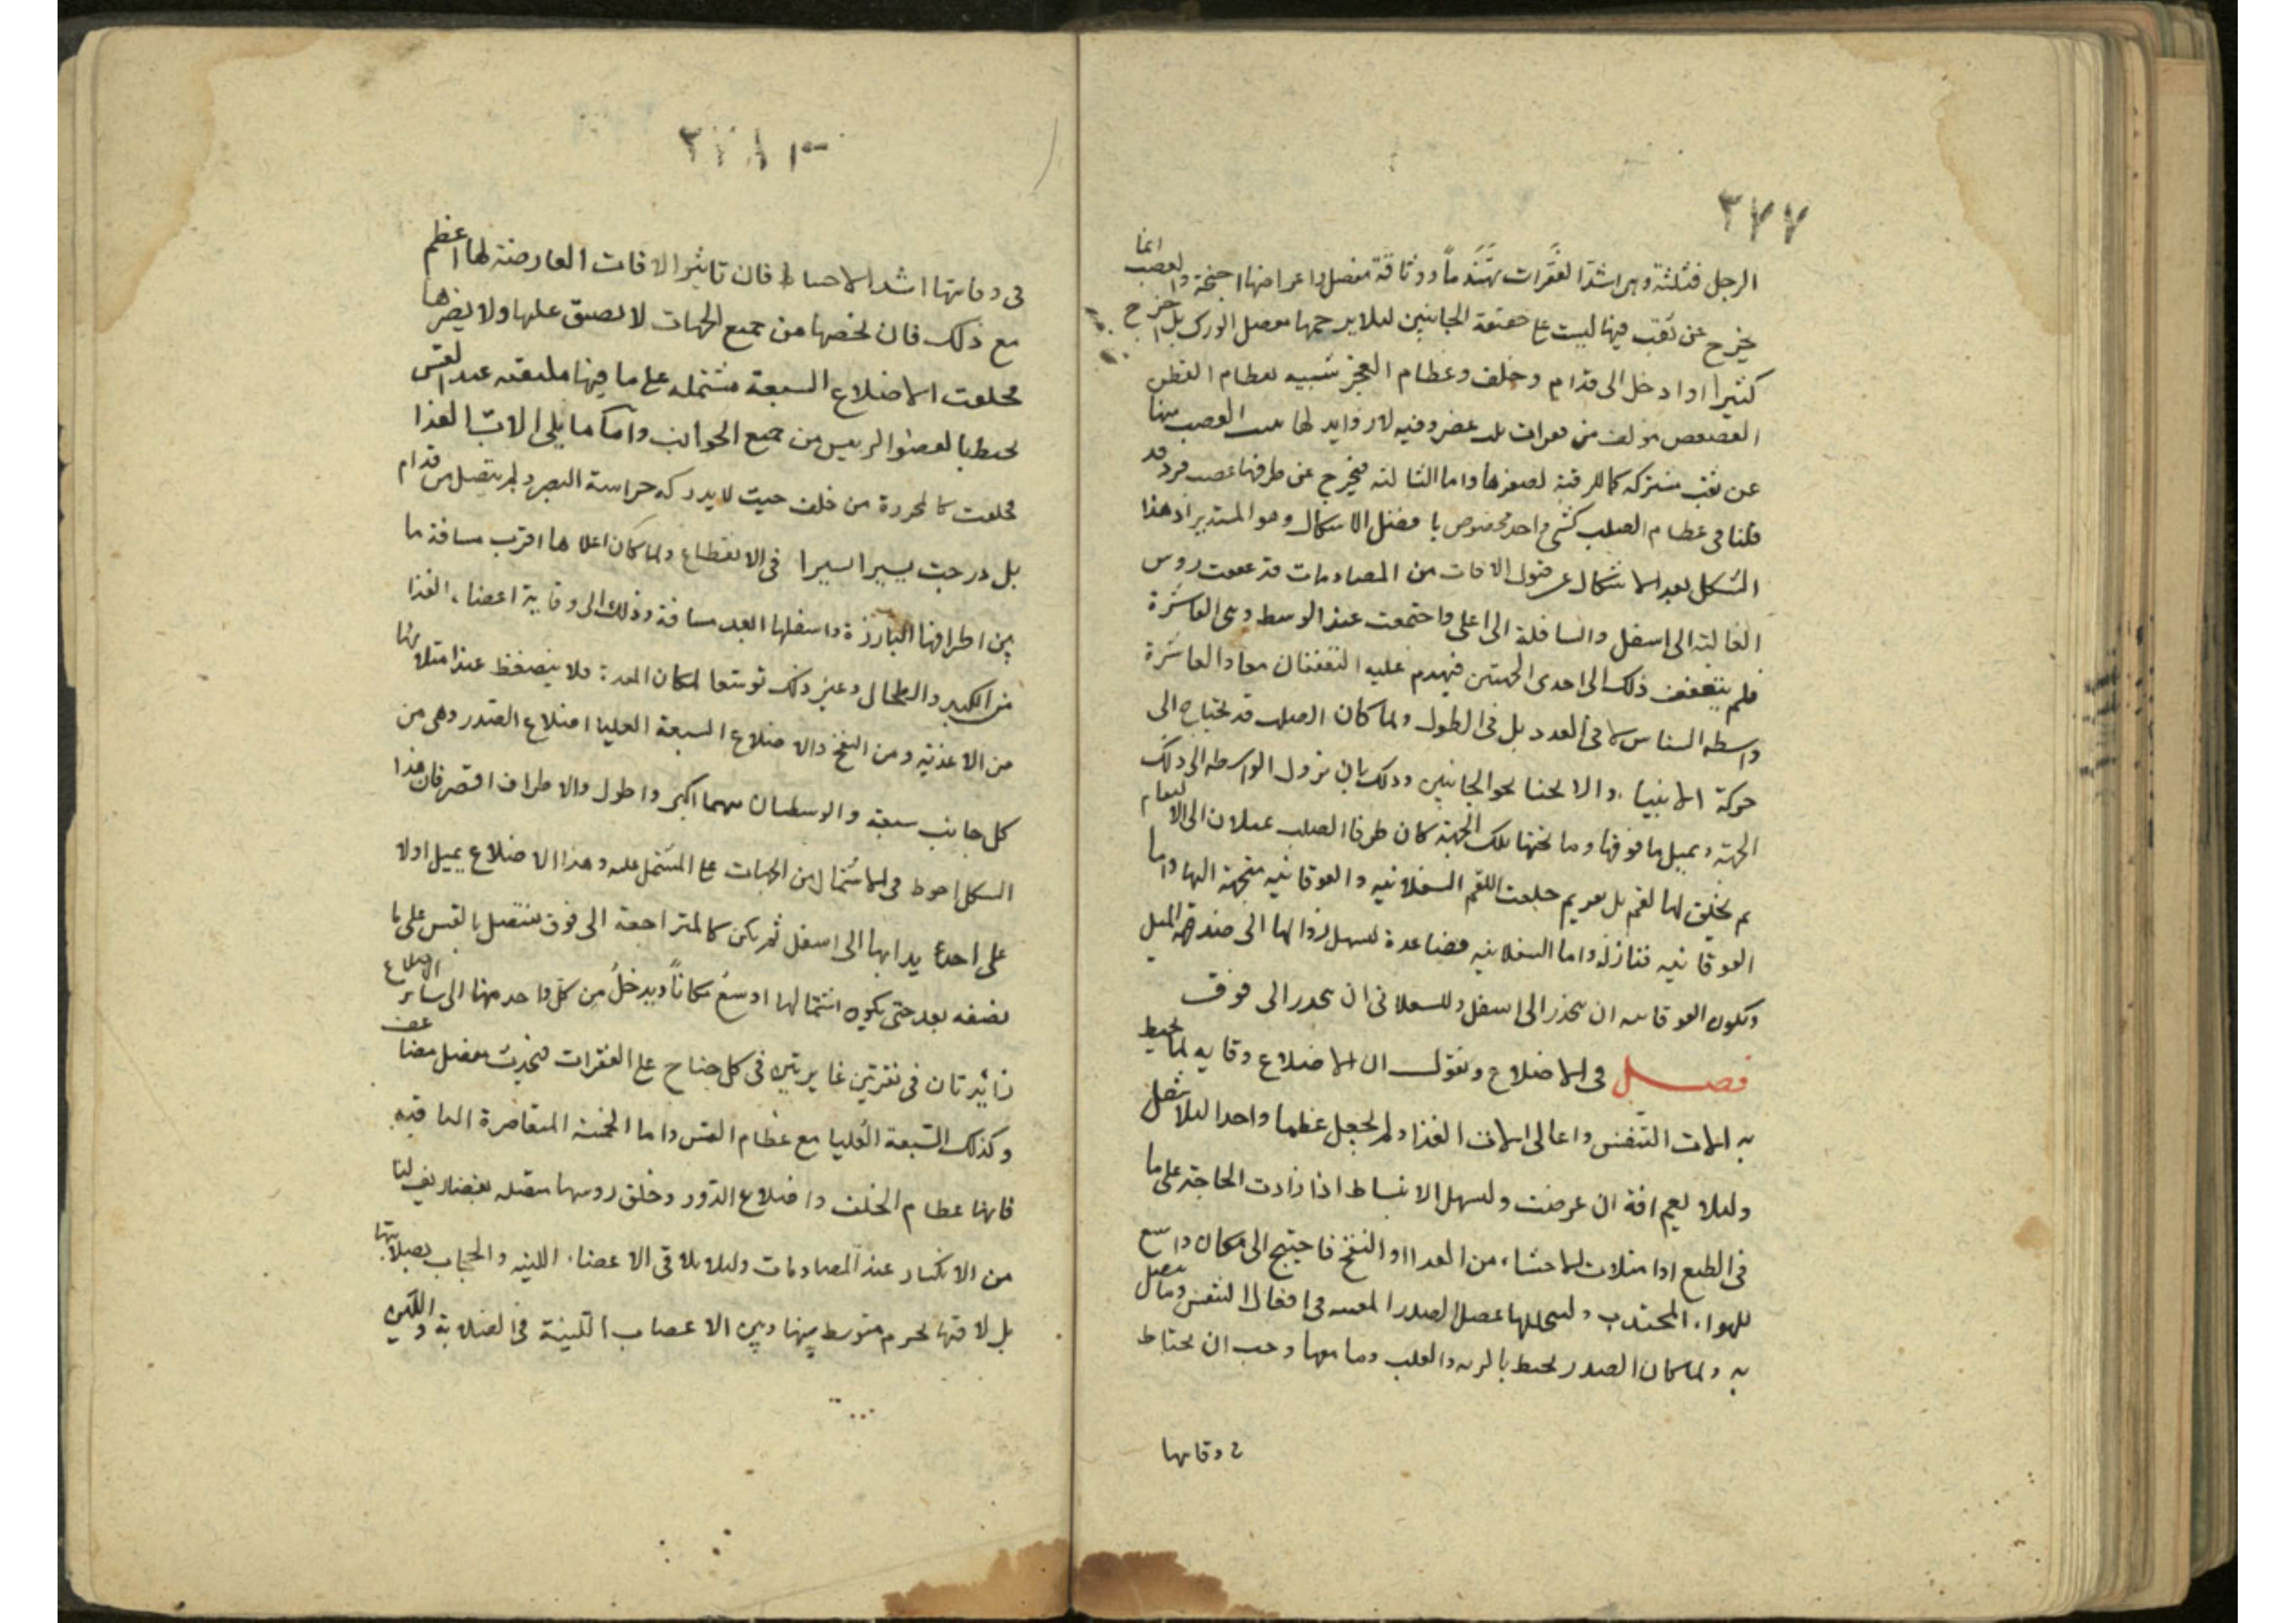 ٣٧٧
الرجل فثلثة وهى اشد الفقرات تهندماً ووثاقة مفصل واعراضها اجنحة والعصب انما
يخرج عن ثقب فيها ليست على حقيقة الجانبين ليلا يزحمها مفصل الورك بل اخرج
كثيرا او ادخل الى قدام وخلف وعظام العجز شبيه بعظام القطن
العصعص مؤلف من فقرات ثلث غضروفيه لا زوايد لها ينبت العصب منها
عن ثقب مشتركه كما للرقبة لصغرها واما الثالثه فيخرج عن طرفها عصب فرد قد
قلنا فى عظام الصلب كشى واحد مخصوص با فضل الاشكال وهو المستدير اذ هذا
الشكل ابعد الاشكال عن قبول الافات من المصادمات قد تعقفت روس
العالية الى اسفل والسافلة الى اعلى واجتمعت عند الوسط وهى العاشرة
فلم يتعقف ذلك الى احدى الجهتين فيهدم عليه التعقفان معا والعاشرة
واسطه السناسن لا فى العدد بل فى الطول ولما كان الصلب قد يحتاج الى
حركة الانثناء والانحنا نحو الجانبين وذلك بان تزول الواسطه الى ذلك
الجهة ويميل ما فوقها وما تحتها تلك الجهة كان طرفا الصلب يميلان الى الالتقام
لم يخلق لها لقم بل نقر ثم جعلت اللقم السفلانيه والفوقانيه متجهة اليها واما
الفوقانيه فنازلة واما السفلانيه فصاعدة ليسهل زوالها الى ضد جهة الميل
ويكون للفوقانيه ان ينجذر الى اسفل وللسفلانى ان ينحدر الى فوق
فصل فى الاضلاع ونقول ان الاضلاع وقايه لما يحيط
به الات التنفس واعالى الات الغذا ولم يجعل عظما واحدا ليلا يثقل
وليلا يعم افة ان عرضت وليسهل الانبساط اذا زادت الحاجة على ما
فى الطبع اذا امتلات الاحشاء من الغذا او النفخ فاحتيج الى مكان واسع
للهواء المجتذب وليتخللها عضل الصدر المعينه فى افعال التنفس وما يتصل
به ولما كان الصدر يحيط بالريه والقلب وما معها وجب ان يحتاط
فى وقايتها
٣٧٨
فى وقايتها اشد الاحتياط فان تاثير الافات العارضة لها اعظم
مع ذلك فان تحصنها من جميع الجهات لا يضيق عليها ولا يضرها
فخلقت الاضلاع السبعة مشتمله على ما فيها ملتقيه عند القس
محيط بالعضو الرييس من جميع الجوانب واما ما يلى الات الغذا
فخلقت كالمحرزة من خلف حيث لا يدركه حراسة البصر ولم يتصل من قدام
بل درجت يسيرا يسيرا فى الانقطاع ولما كان اعلاها اقرب مسافة ما
بين اطرافها البارزة واسفلها ابعد مسافة وذلك الى وقاية اعضاء الغذا
من الكبد والطحال وغير ذلك توسعا لمكان المعدة فلا ينضغظ عند امتلائها
من الاغذية ومن النفخ والاضلاع السبعة العليا اضلاع الصدر وهى من
كل جانب سبعة والوسطيان منهما اكبر واطول والاطراف اقصر فان هذا
الشكل احوط فى الاشتمال من الجهات على المشتمل عليه وهذا الاضلاع يميل اولا
على احديدابها الى اسفل ثم يكن كالمتراجعة الى فوق فيتصل بالقس على ما
نصفه بعد حتى يكون اشتمالها اوسع مكاناً ويدخل من كل واحد منها الى ساير الاضلاع
زايدتان فى نقرتين غايرتين فى كل جناح على الفقرات فيحدث مفصل مضاعف
وكذلك السبعة العليا مع عظام القس واما الخمسة المتقاصرة الباقيه
فانها عظام الخلف واضلاع الزور وخلق روسها متصله بغضاريف لتا
من الانكسار عند المصادمات وليلا يلاقى الاعضاء اللينه والحجاب بصلابتها
بل لاقتها بجرم متوسط بينها وبين الاعصاب اللينة فى الصلابة واللين